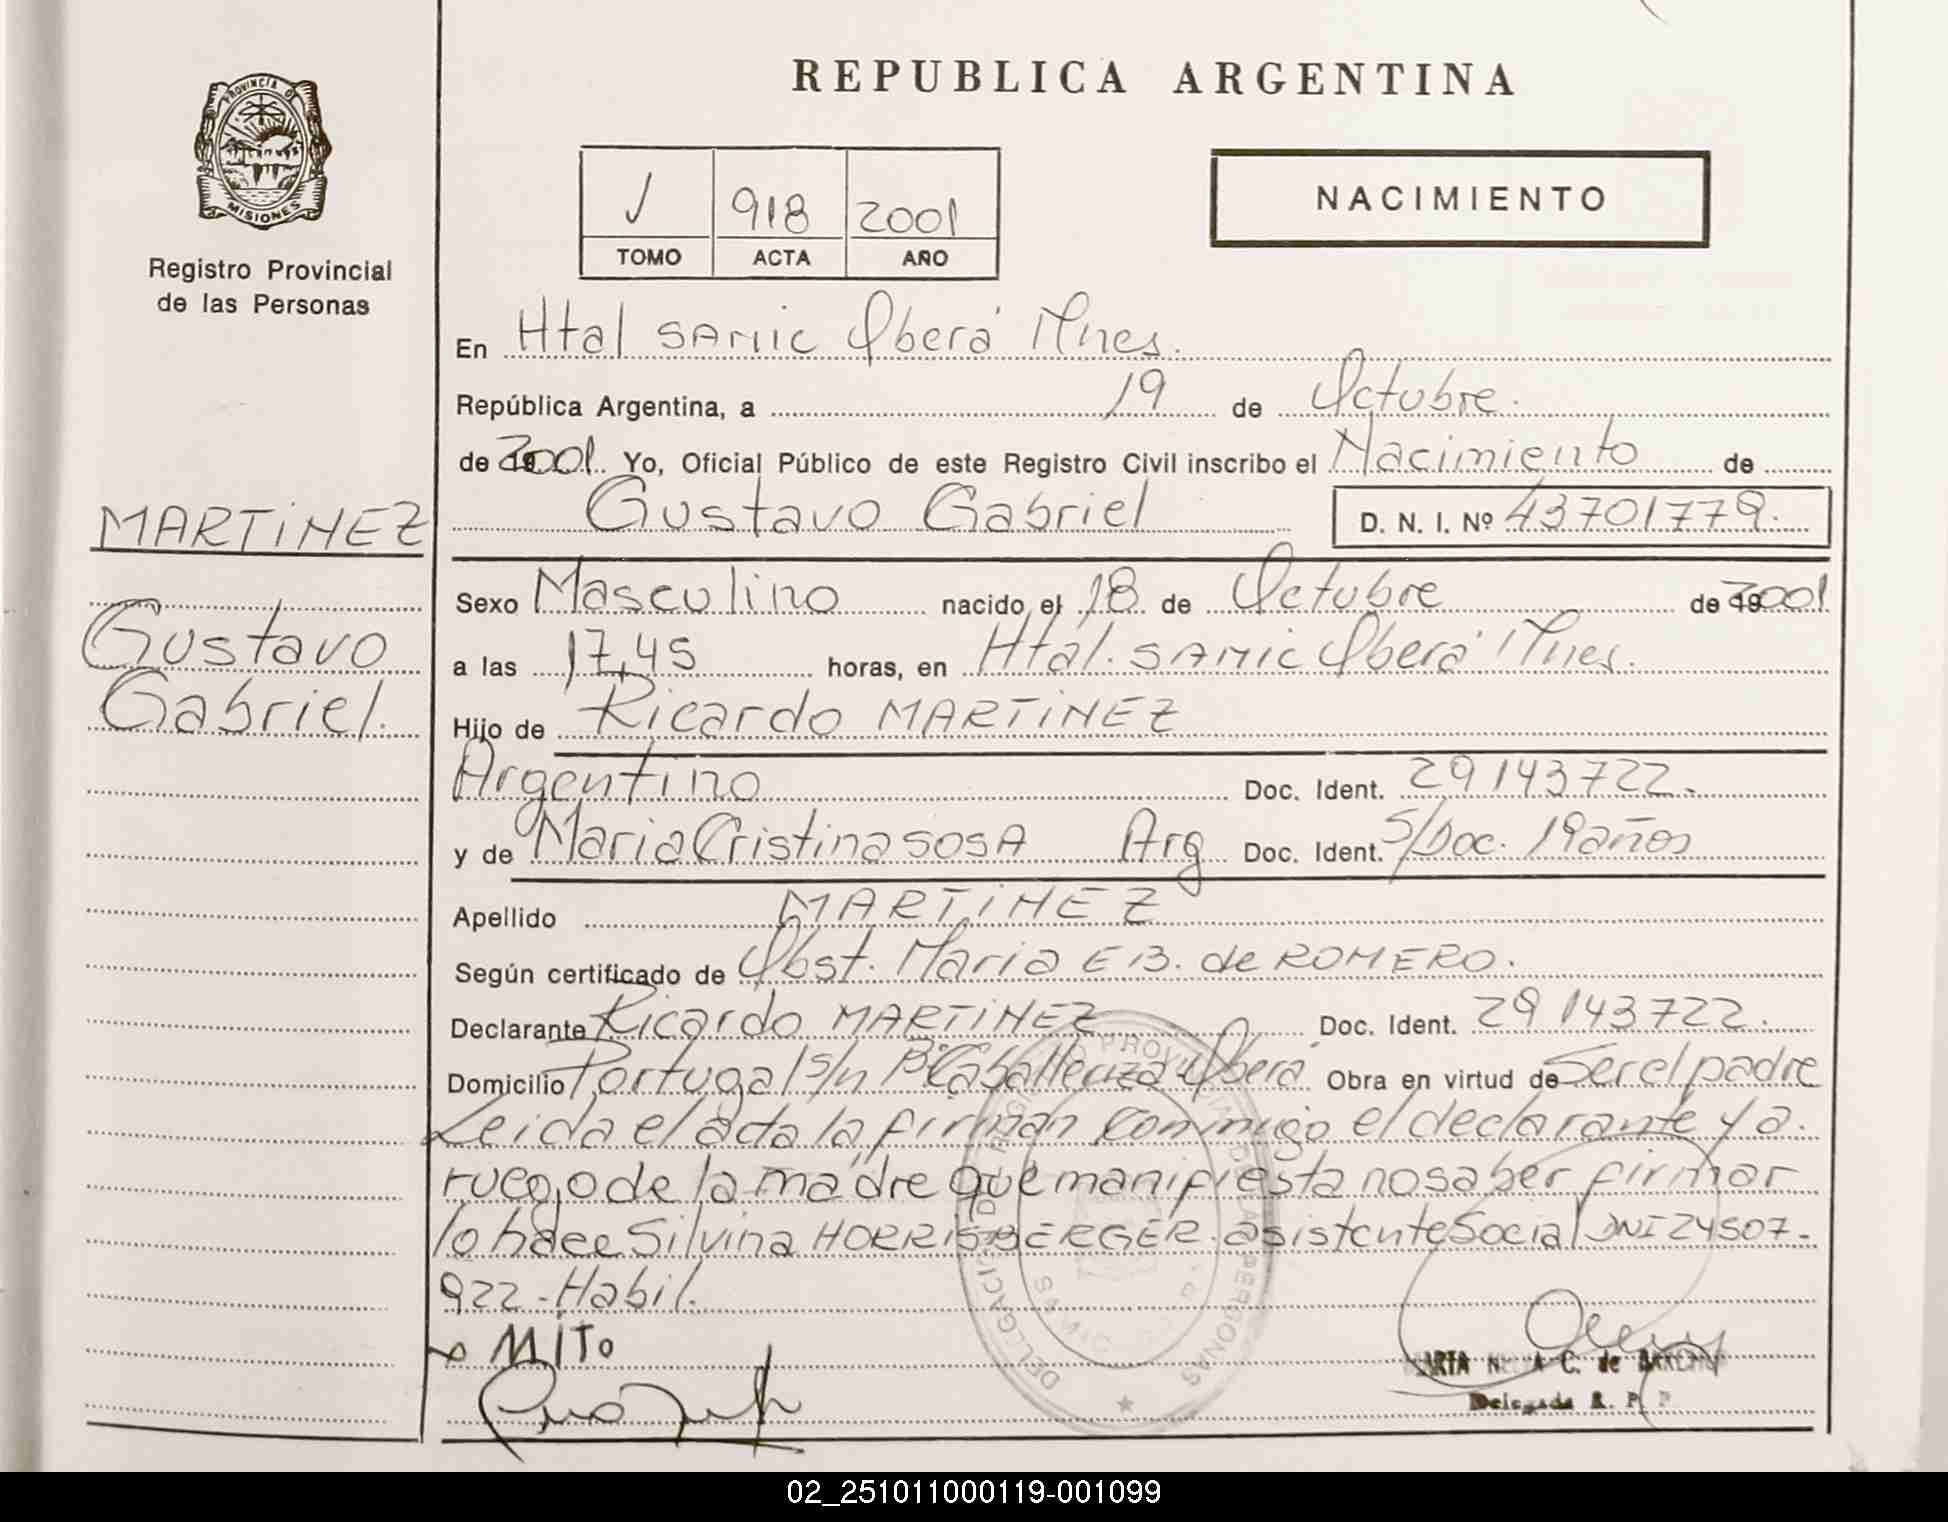 REPUBLICA ARGENTINA
PROVINCIA D
MISIONES
Registro Provincial
de las Personas
V 918 2001
TOMO ACTA AÑO
NACIMIENTO
En Htal SAMIC Oberá Mnes.
República Argentina, a 19 de Octubre.
de 2001 Yo, Oficial Público de este Registro Civil inscribo el Nacimiento de
Gustavo Gabriel D. N. I. Nº 43701779.
MARTINEZ
Gustavo
Gabriel.
Sexo Masculino nacido el 18 de Octubre de 2001
a las 17,45 horas, en Htal. SAMIC Oberá Mnes.
Hijo de Ricardo MARTINEZ
Argentino Doc. Ident. 29143722.
y de Maria Cristina SOSA Arg Doc. Ident. S/Doc. 19 años
Apellido MARTINEZ
Según certificado de Obst. Maria E B. de ROMERO.
Declarante Ricardo MARTINEZ Doc. Ident. 29143722.
Domicilio Portugal s/n Bº Caballeriza Oberá Obra en virtud de Ser el padre
Leida el acta la firman conmigo el declarante y a.
ruego de la madre que manifiesta no saber firmar
lo hace Silvina HORRISBERGER. asistente Social DNI 24507-
922 - Habil.
MITO
C. de
Delegada R. P. P
02_251011000119-001099